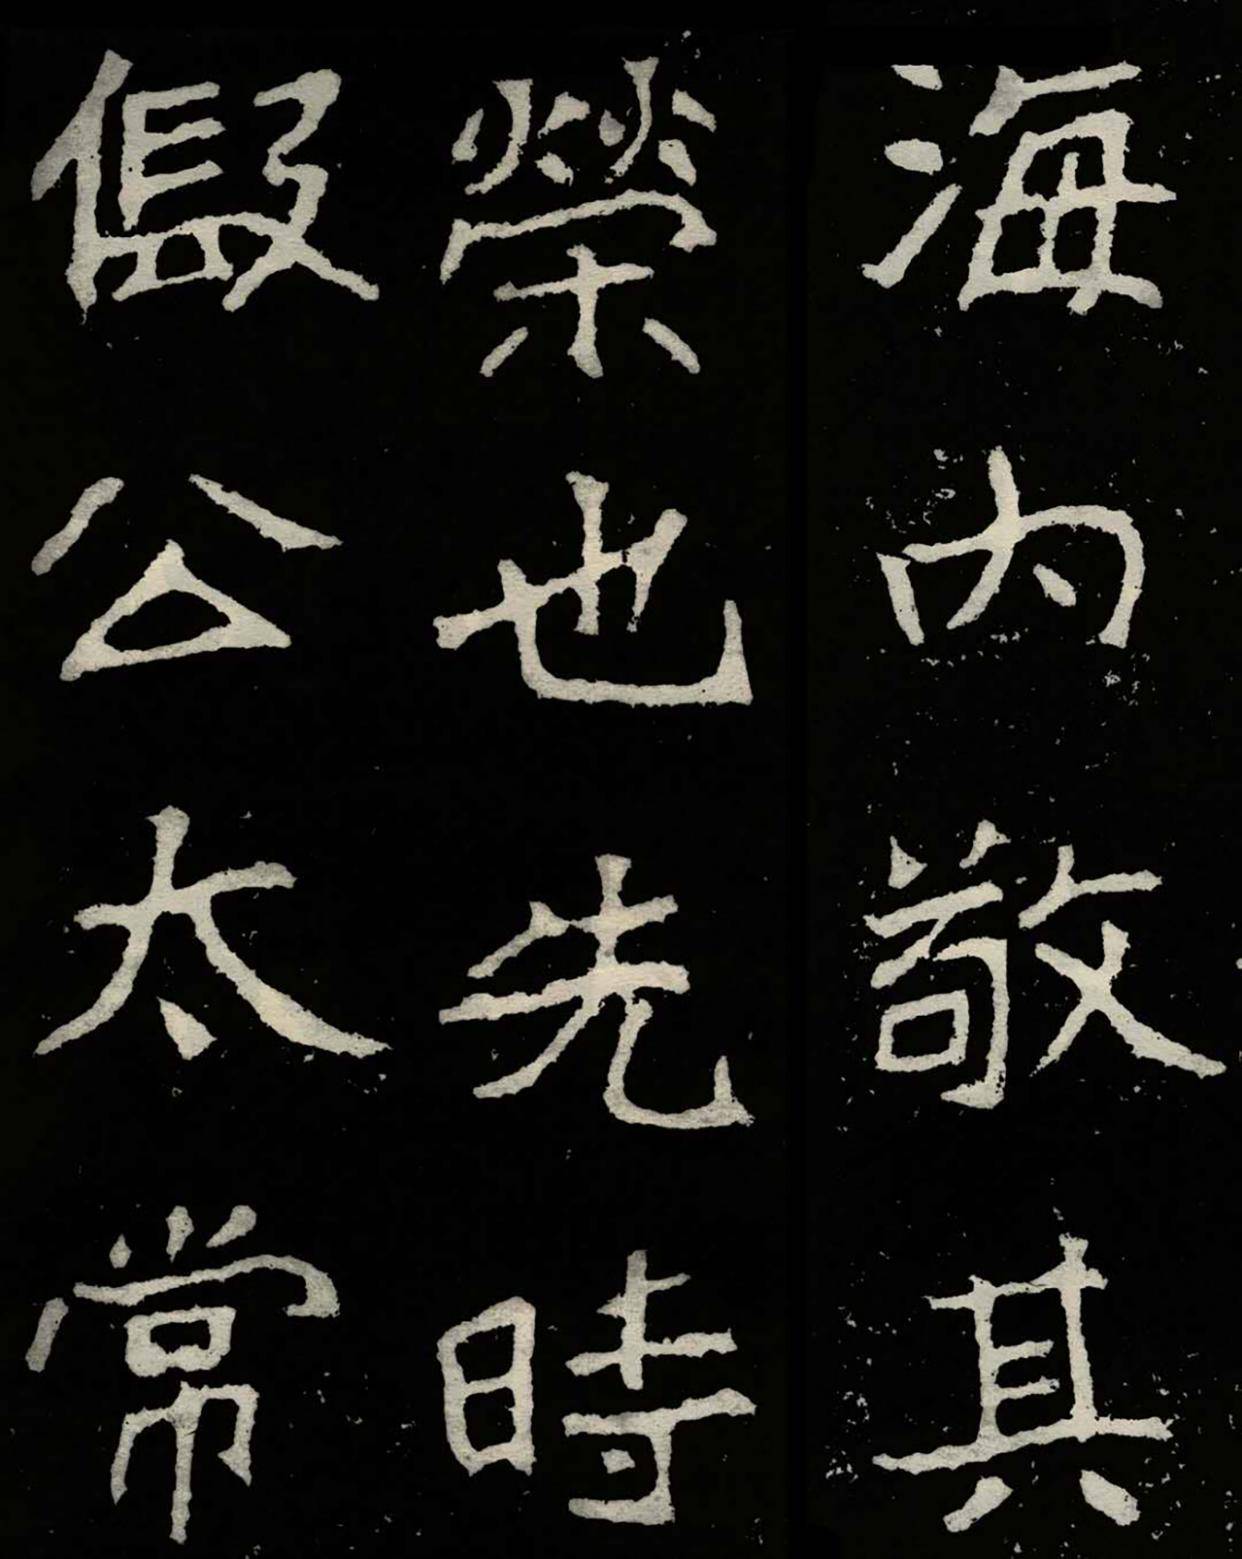 海内敬其
榮也先時
假公太常